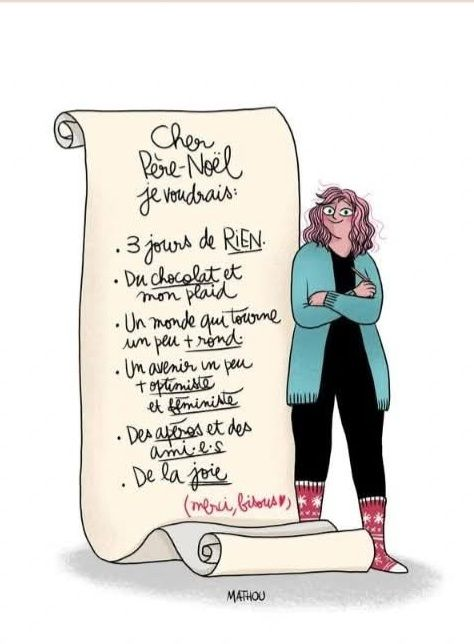 Cher
Père-Noël
je voudrais:
. 3 jours de RIEN.
. Du chocolat et
mon plaid
. Un monde qui tourne
un peu + rond.
. Un avenir un peu
+ optimiste
et féministe
. Des apéros et des
ami·e·s
. De la joie
(merci, bisous♥)
MATHOU